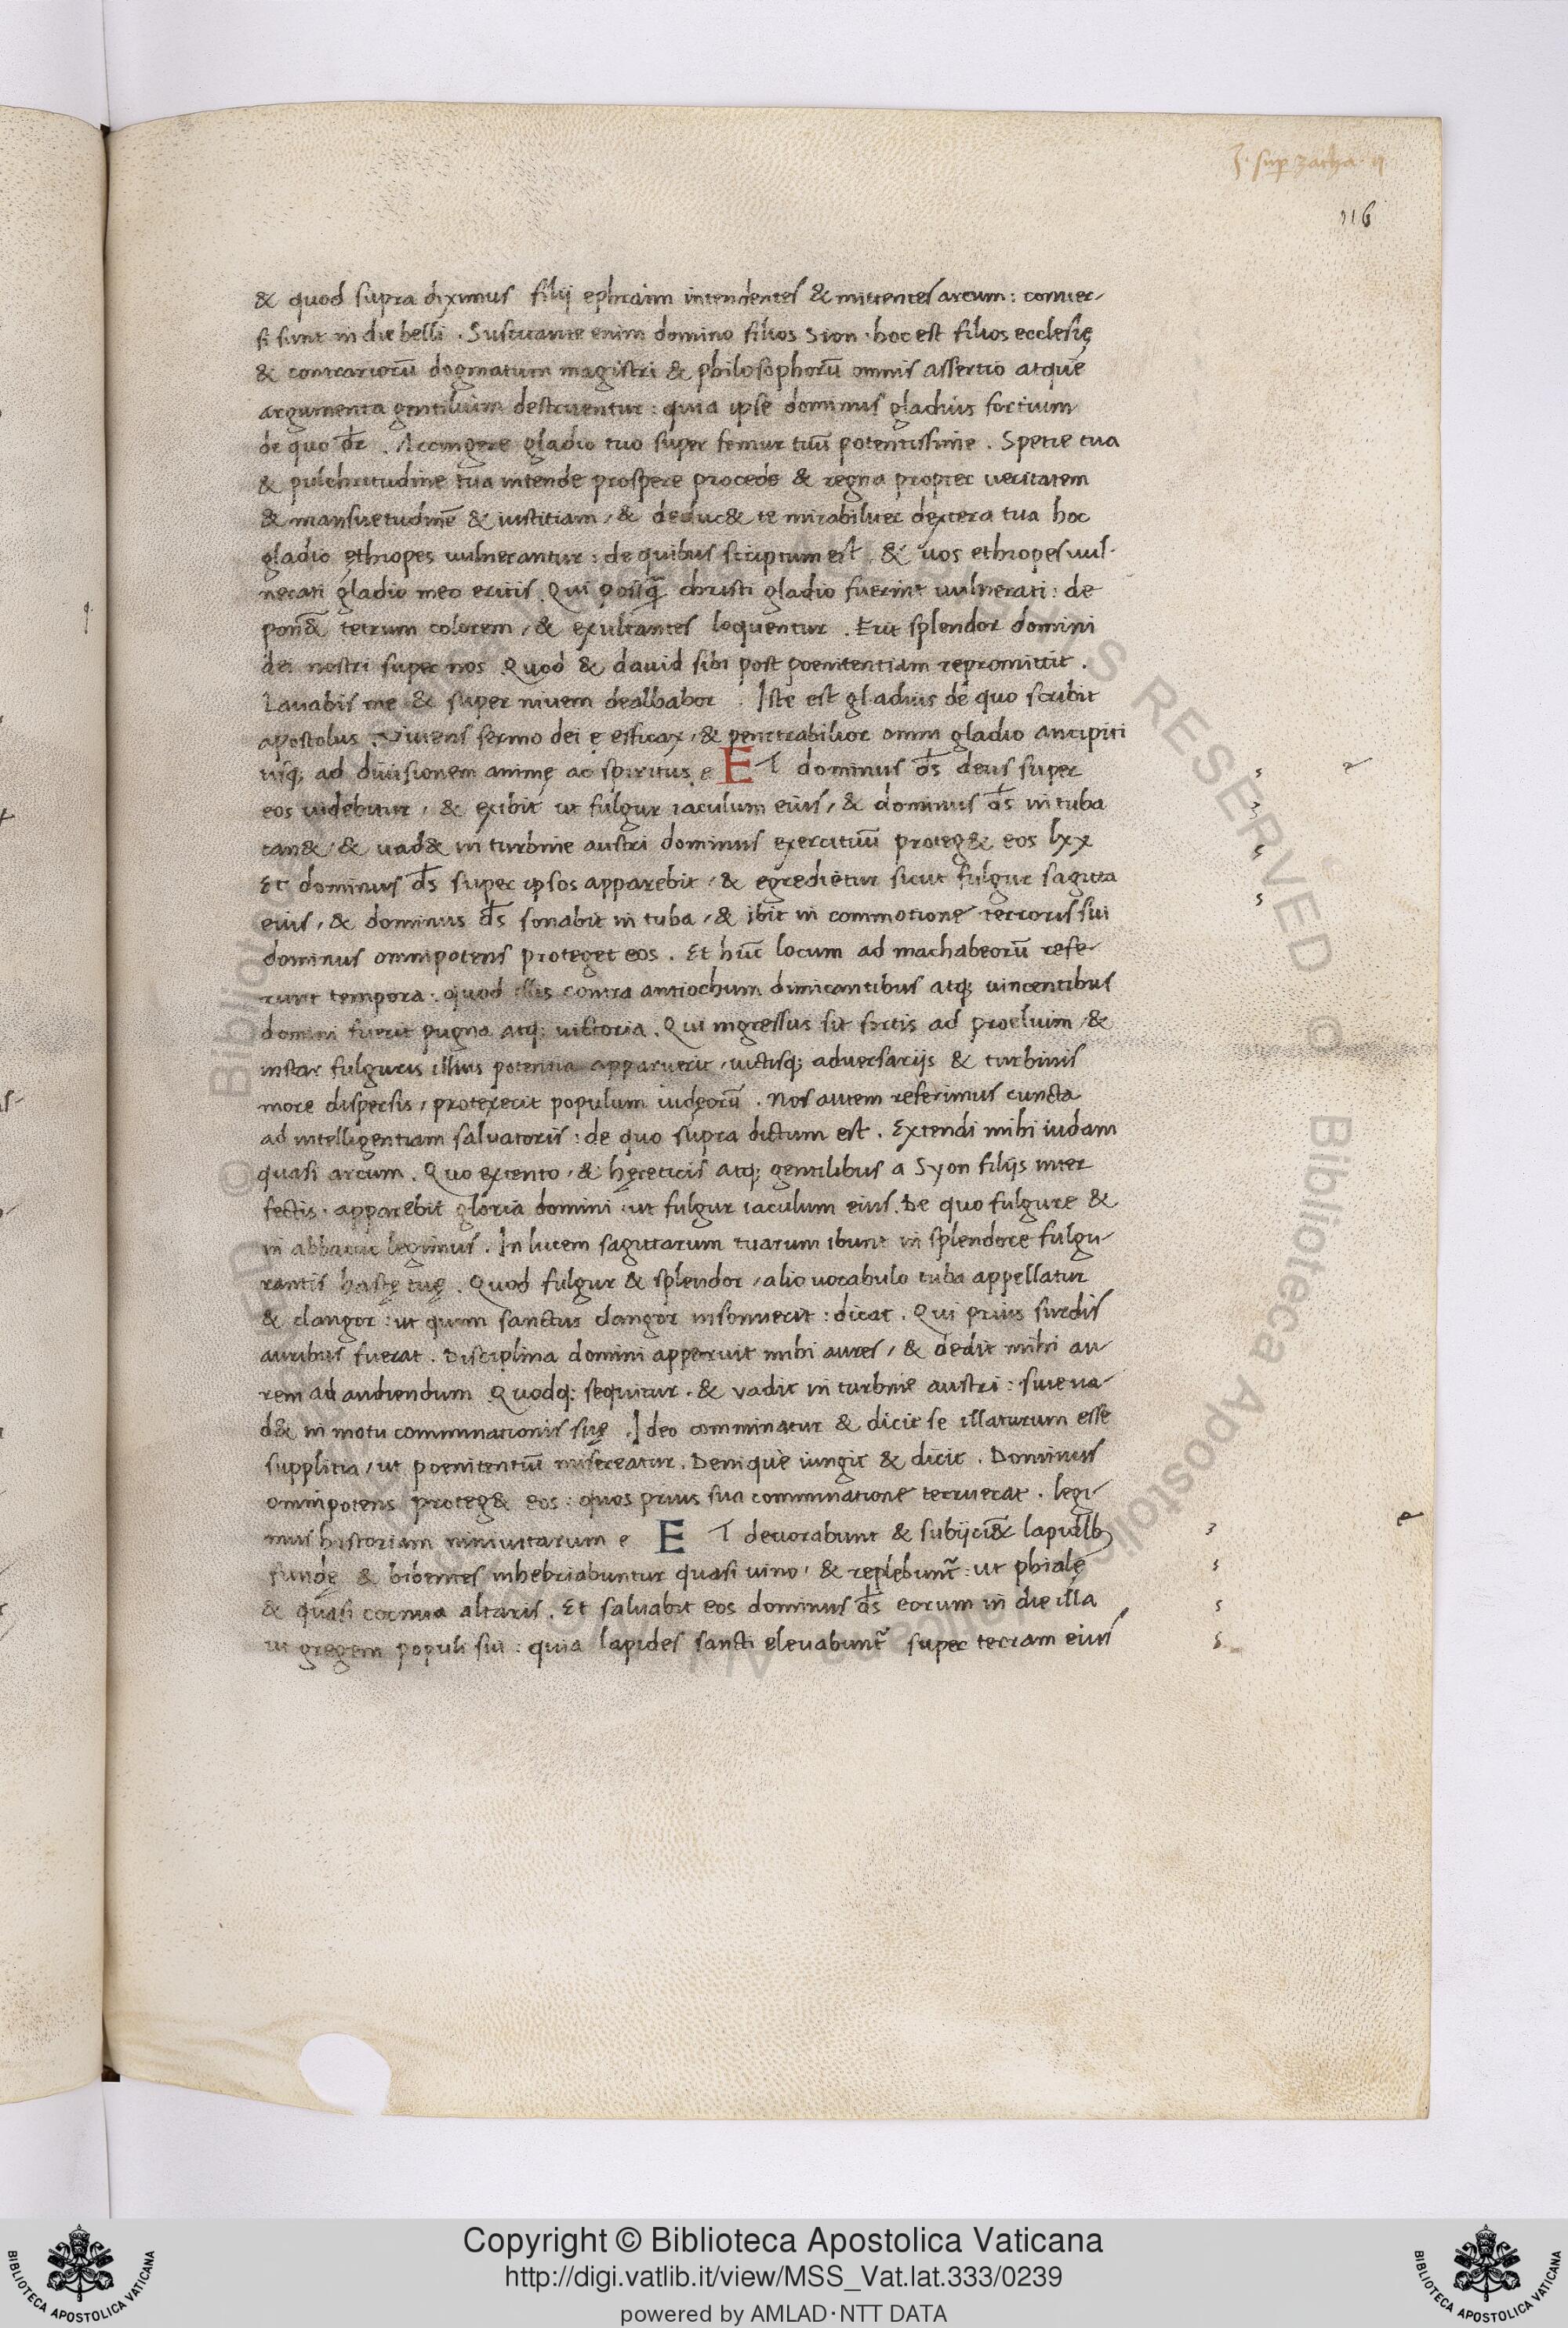 J. sup zacha. 9
116
& quod supra diximus filij ephraim intendentes & mittentes arcum: conuer-
si sunt in die belli. Suscitante enim domino filios Sion. hoc est filios ecclesię
& contrariorū dogmatum magistri & philosophorū omnis assertio atque
argumenta gentilium destruentur: quia ipse dominus gladius fortium
de quo dr̄. Accingere gladio tuo super femur tuū potentissime. Spetie tua
& pulchritudine tua intende prospere procede & regna propter ueritatem
& mansuetudinē & iustitiam, & deduc& te mirabiliter dextera tua hoc
gladio ethiopes uulnerantur: de quibus scriptum est, & uos ethiopes uul-
nerati gladio meo eritis. Qui postq̄ christi gladio fuerint uulnerati: de
pon& tetrum colorem, & exultantes loquentur. Erit splendor domini
dei nostri super nos. Quod & dauid sibi post poenitentiam repromittit.
Lauabis me & super niuem dealbabor. Iste est gladius de quo scribit
apostolus. Viuens sermo dei ę efficax, & penetrabilior omni gladio ancipiti
usq; ad diuisionem animę ac spiritus. e ET dominus d̄s deus super
eos uidebitur, & exibit ut fulgur iaculum eius, & dominus d̄s in tuba
can& & uad& in turbine austri dominus exercituū proteg& eos lxx
Et dominus d̄s super ipsos apparebit, & egredietur sicut fulgur sagitta
eius, & dominus d̄s sonabit in tuba, & ibit in commotione terroris sui
dominus omnipotens proteget eos. Et hūc locum ad machabeorū refe-
runt tempora. quod illis contra antiochum dimicantibus atq; uincentibus
domini fuerit pugna atq; uictoria. Qui ingressus sit fortis ad proelium, &
instar fulguris illius potentia apparuerit, uictisq; aduersarijs & turbinis
more dispersis, protexerit populum iudęorū. Nos autem referimus cuncta
ad intelligentiam saluatoris: de quo supra dictum est. Extendi mihi iudam
quasi arcum. Quo extento, & hęreticis atq; gentilibus a Syon filijs inter
fectis. apparebit gloria domini ut fulgur iaculum eius. De quo fulgure &
in abbacuc legimus. In lucem sagittarum tuarum ibunt in splendore fulgu-
rantis hastę tuę. Quod fulgur & splendor, alio uocabulo tuba appellatur
& clangor: ut quum sanctus clangor insonuerit: dicat. Qui prius surdis
auribus fuerat. Disciplina domini apperuit mihi aures, & dedit mihi au-
rem ad audiendum. Quodq; sequitur. & vadit in turbine austri: siue ua-
d& in motu comminationis suę. Ideo comminatur & dicit se illaturum esse
supplitia, ut poenitentiū misereatur. Denique iungit & dicit. Dominus
omnipotens proteg& eos: quos prius sua comminatione terruerat. legi-
mus historiam niniuitarum e ET deuorabunt & subijci& lapidib
fundę & bibentes inhebriabuntur quasi uino, & replebunt̄: ut phialę
& quasi cornua altaris. Et saluabit eos dominus d̄s eorum in die illa
ut gregem populi sui: quia lapides sancti eleuabunt̄ super terram eius
Copyright © Biblioteca Apostolica Vaticana
http://digi.vatlib.it/view/MSS_Vat.lat.333/0239
powered by AMLAD·NTT DATA